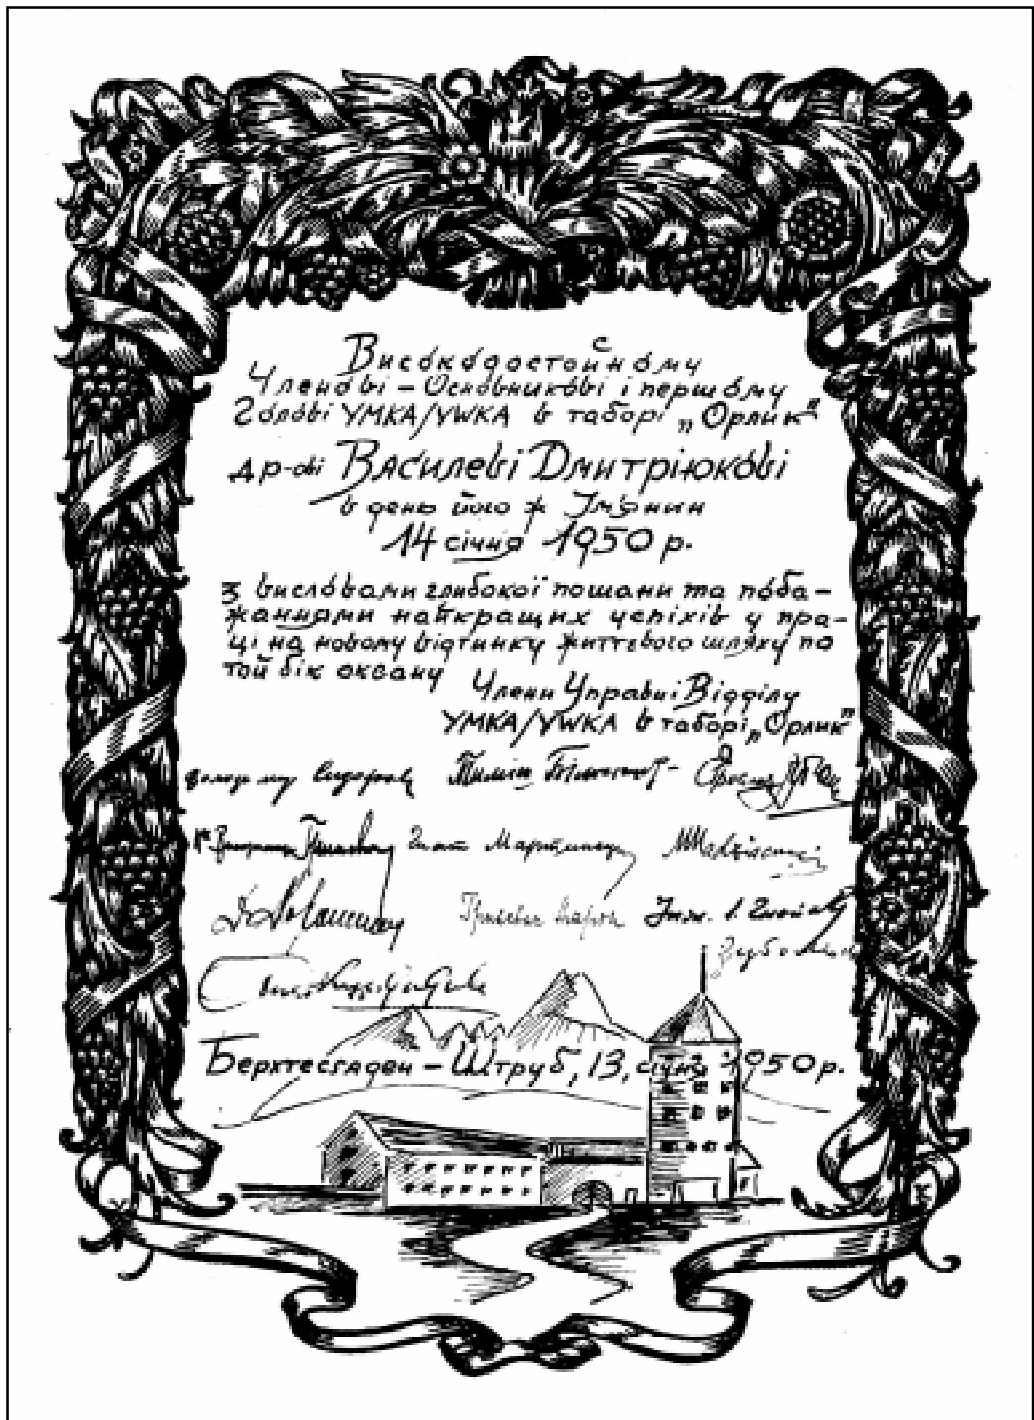 Високодостойному
Членові – Основникові і першому
Голові УМКА/УWКА в таборі „Орлик"
др-ові Василеві Дмитріюкові
в день його ж Імянин
14 січня 1950 р.
з висловами глибокої пошани та поба-
жаннями найкращих успіхів у пра-
ці на новому відтинку життєвого шляху по
той бік океану
Члени Управи Відділу
УМКА/УWКА в таборі „Орлик"
Гнат Мартинець
Інж.
Берхтесгаден – Штруб, 13, січня 1950 р.